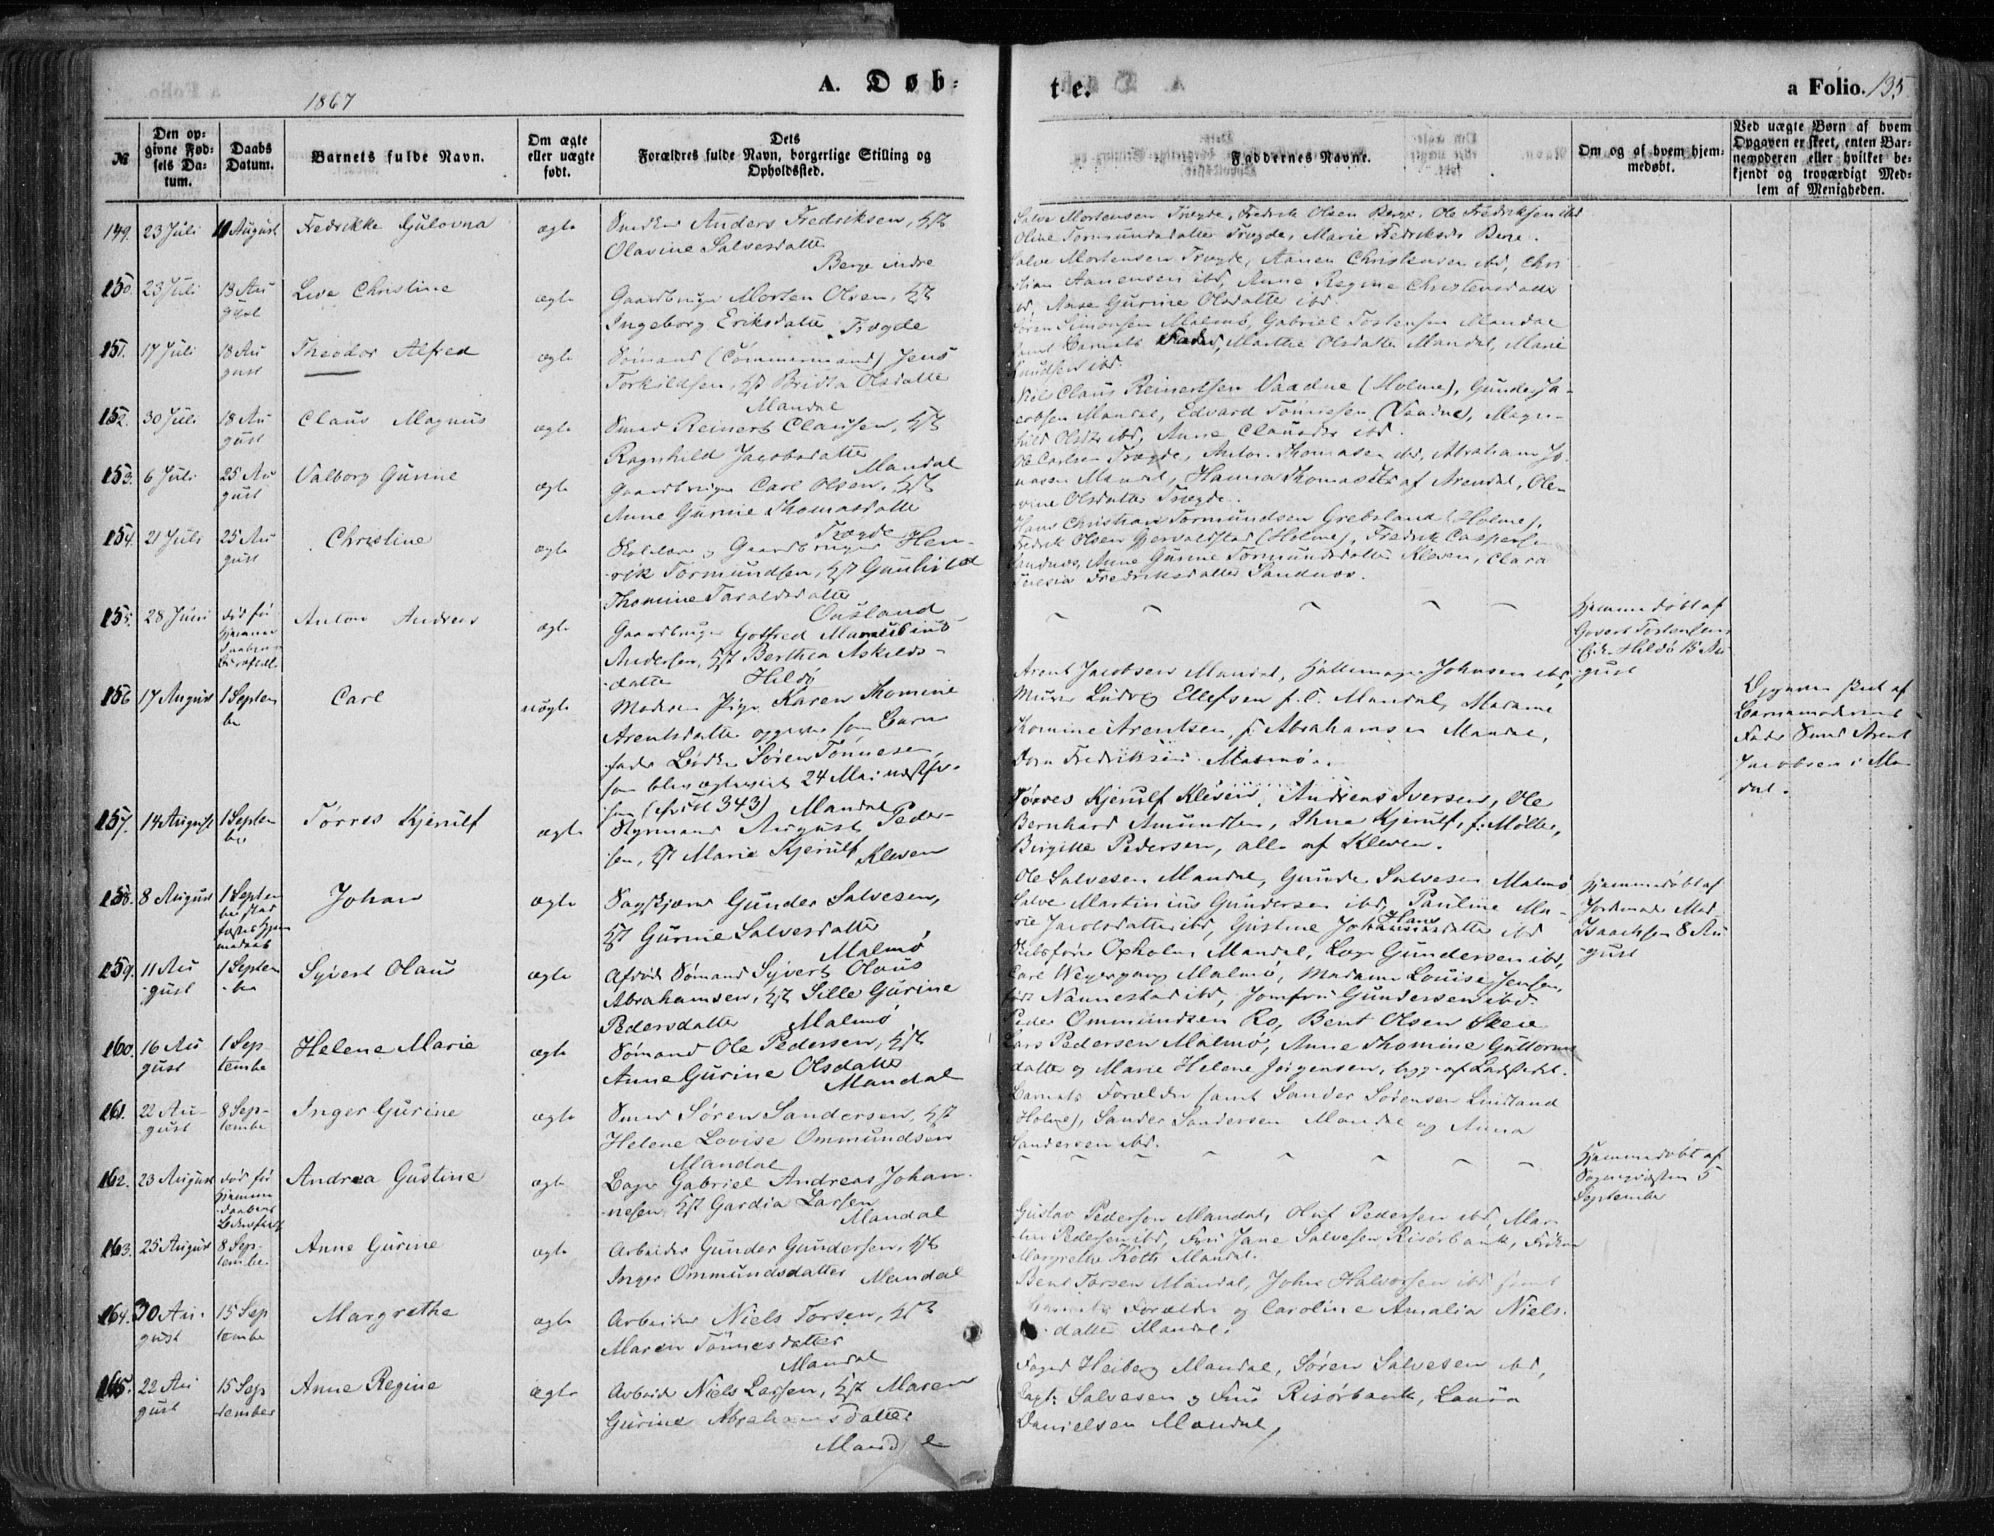 1867
A. Døb-
te.
a Folio. 135
№
Den op-
givne Fød-
sels Da-
tum.
Daabs
Datum.
Barnets fulde Navn.
Om ægte
eller uægte
født.
Dets
Forældres fulde Navn, borgerlige Stilling og
Opholdssted.
Faddernes Navne.
Om og af hvem hjem-
medøbt.
Ved uægte Børn af hvem
Opgaven er skeet, enten Bar-
nemoderen eller hvilket be-
kjendt og troværdigt Med-
lem af Menigheden.
149. 23 Juli 11 August Fredrikke Gulovna ægte
Anders Fredriksen,
Olavine Salvesdatter
Berge indre
Salve Mortensen Trægde, Fredrik Olsen Berge, Ole Fredriksen ibd
Oline Tormundsdatter Trægde, Marie Fredriksdr Berge.
150. 23 Juli 18 Au
gust
Live Christine ægte
Gaardbruger Morten Olsen,
Ingeborg Eriksdatter Trægde
Salve Mortensen Trægde, Aanen Christensen ibd, Chri
stian Aanensen ibd, Anne Regine Christensdatter
ibd, Aase Gurine Olsdatter ibd.
151. 17 Juli 18 Au
gust
Theodor Alfred ægte
Sømand (Tømmermand) Jens
Torkildsen, Britta Olsdatter
Mandal
Søren Simonsen Malmø, Gabriel Tostensen Mandal
samt Barnets Fader, Marthe Olsdatter Mandal, Marie
Knudsen ibd.
152. 30 Juli 18 Au
gust
Claus Magnus ægte
Smed Reinert Clausen,
Ragnhild Jacobsdatter
Mandal
Nils Claus Reinertsen Vaadne (Holme), Gunder Ja-
cobsen Mandal, Edvard Tönnesen (Vaadne), Magn-
hild Olsdtr ibd, Anne Clausdtr ibd.
153. 6 Juli 25 Au
gust
Valborg Gurine ægte
Gaardbruger Carl Olsen,
Anne Gurine Thomasdatter
Trægde
Ole Carlsen Trægde, Anton Thomasen ibd, Abraham Jo-
nassen Mandal, Hanna Thomasdtr af Arendal, Ole-
vine Olsdatter Trægde.
154. 21 Juli 25 Au
gust
Christine ægte
Skolelærer og Gaardbruger Hen-
rik Tormundsen, Gunhild
Thomine Taraldsdatter
Ousland
Hans Christian Tormundsen Grebsland (Holme),
Fredrik Olsen Gjervoldstad (Holme), Fredrik Caspersen
Sandnæs, Anne Gurine Tormundsdatter Kleven, Clara
Fredriksdatter Sandnæs.
155. 28 Juni
død før
Hjemme
daaben
Anton Andreas ægte
Gaardbruger Gotfred
Andersen, Berthea Askilds-
datter Hildø
Hjemmedøbt af
Govert Tostensen
Hildø 15 Au
gust
156 17 August 1 Septem
ber
Carl uægte
Moderen Pige Karen Thomine
Arentsdatter opgivet som Barne
fader Bødker Søren Tønnesen,
som blev ægteviet 24 Mai næstfor-
343) Mandal
Arent Jacobsen Mandal, Johnsen ibd,
Ludvig Ellefsen Mandal, Madame
Thomine Arentsen, f. Abrahamsen Mandal,
Fredriksen Malmø.
Opgaven skeet af
Barnemoderens
Fader Smed Arent
Jacobsen i Man
dal.
157. 14 August 1 Septem
ber
Tørres Kjerulf ægte
Styrmand August Peder-
sen, Marie Kjerulf Kleven
Tørres Kjerulf Kleven, Andreas Iversen, Ole
Bernhard Amundsen, Kjerulf, f. Møller,
Birgitte Pedersen, alle af Kleven.
158. 8 August 1 Septem
ber
Johan ægte
Sagskjærer Gunder Salvesen,
Gurine Salvesdatter
Malmø
Ole Salvesen Mandal, Gunder Salvesen Malmø
Salve Martinius Gundersen ibd, Pauline Ma-
rie Jacobsdatter ibd, Gustine Johannesdatter ibd
Hjemmedøbt af
Jordemoder Mad.
Isaachsen 8 Au
gust
159. 11 Au
gust
1 Septem
ber
Syvert Olaus ægte
Afdøde Sømand Syvert Olaus
Abrahamsen, Sille Gurine
Pedersdatter Malmø
Skibsfører Oxholm Mandal, Gundersen ibd,
Carl Weyergang Malmø, Madame Louise Jensen,
født Nannestad ibd, Jomfru Gundersen ibd.
160. 16 Au
gust
1 Sep-
tember
Helene Marie ægte
Sømand Ole Pedersen,
Anne Gurine Olsdatter
Mandal
Peder Ommundsen Ro, Bent Olsen Skeie
Lars Pedersen Malmø, Anne Thomine Guttorms
datter og Marie Helene Jørgensen, begge af Ladestedet.
161. 22 Au-
gust
8 Sep-
tember
Inger Gurine ægte
Smed Søren Sandersen,
Helene Lovise Ommundsen
Mandal
Barnets Forældre samt Sander Sørensen Lindland
(Holme), Sander Sandersen Mandal og Anna
Sandersen ibd.
162. 23 August død før
Hjemme
daabens
Bekræftelse
Andrea Gustine ægte
Bager Gabriel Andreas Johan-
nesen, Gardia Larsen
Mandal
Hjemmedøbt af
Sognepræsten 5
September
163. 25 August 8 Sep-
tember
Anne Gurine ægte
Arbeider Gunder Gundersen,
Inger Ommundsdatter Mandal
Gustav Pedersen Mandal, Oluf Pedersen ibd, Mar-
the Pedersen ibd, Fru Jane Salvesen Risørbank, Frøken
Margrethe Koth Mandal.
164. 30 Au-
gust
15 Sep
tember
Margrethe ægte
Arbeider Niels Torsen,
Maren Tønnesdatter
Mandal
Bent Torsen Mandal, John Halvorsen ibd samt
Barnets Forældre og Caroline Amalia Niels-
datter Mandal.
165. 22 Au
gust
15 Sep
tember
Anne Regine ægte
Arbeider Niels Larsen, Maren
Gurine Abrahamsdatter
Mandal
Foged Heiberg Mandal, Søren Salvesen ibd,
Capt. Salvesen og Frue Risørbank, Laura
Danielsen Mandal,